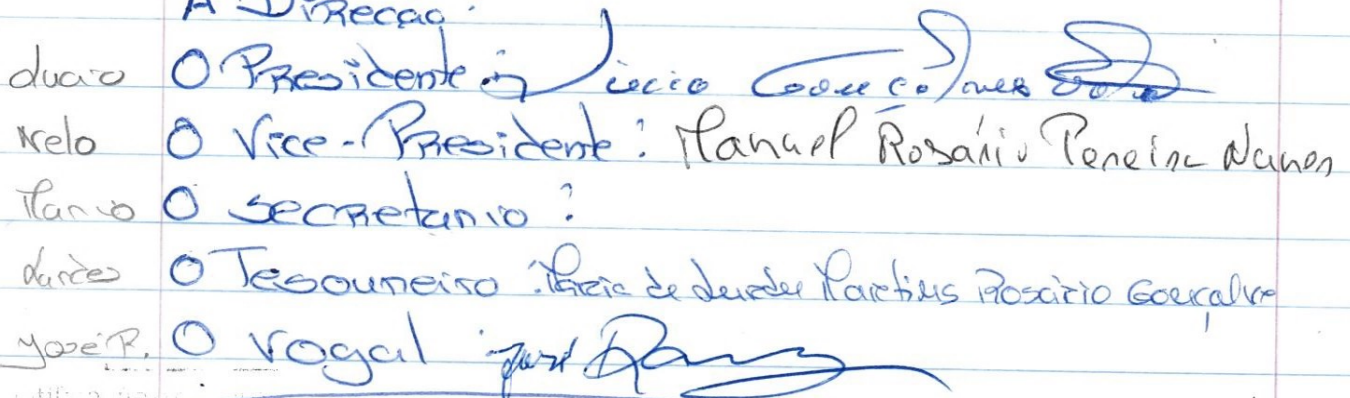 A Direcção:
Lucio O Presidente: Lúcio Gonçalves
Nelo O Vice-Presidente: Manuel Rosário Pereira Nunes
Marco O secretario:
Lurdes O Tesoureiro: Maria de Lurdes Martins Rosário Gonçalves
José R. O vogal José